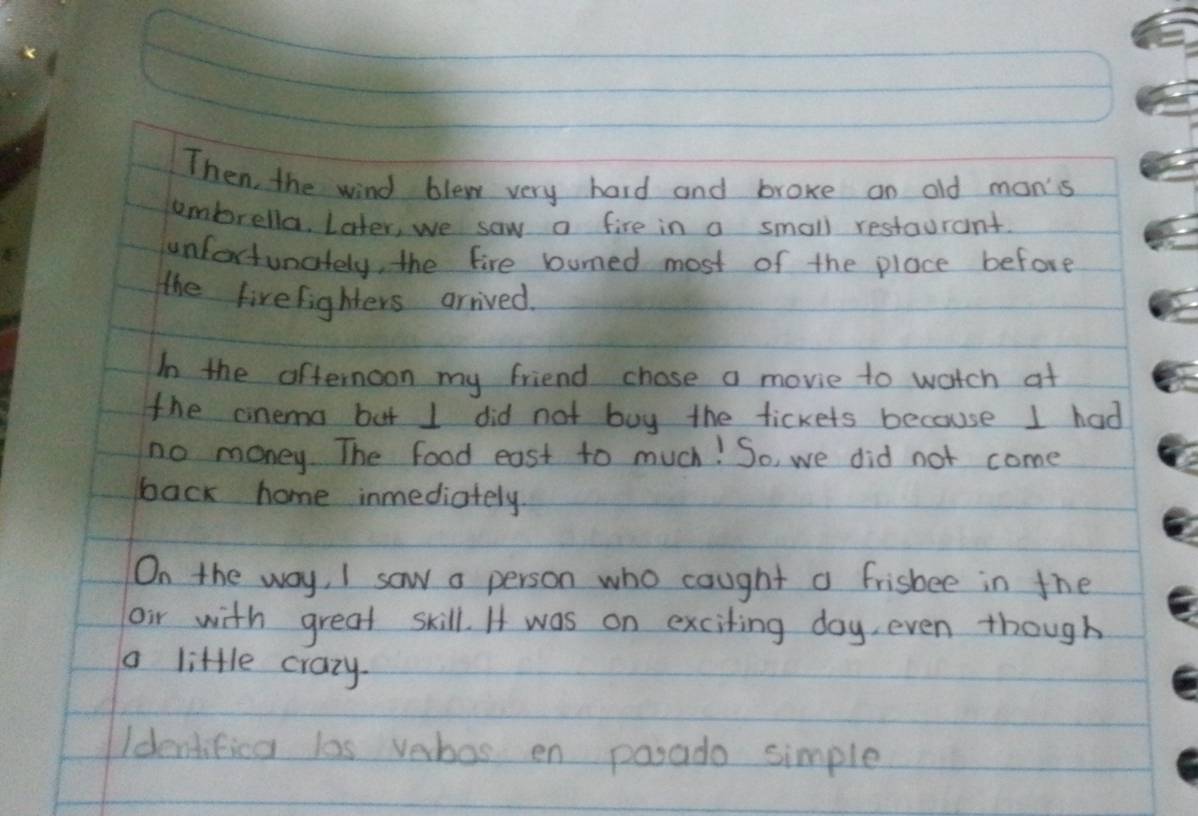 Then, the wind blew very hard and broke an old man's
umbrella. Later, we saw a fire in a small restaurant.
unfortunately, the fire burned most of the place before
the firefighters arrived.
In the afternoon my friend chose a movie to watch at
the cinema but I did not buy the tickets because I had
no money. The food cost to much! So, we did not come
back home inmediately.
On the way, I saw a person who caught a frisbee in the
air with great skill. It was an exciting day, even though
a little crazy.
Identifica los verbos en pasado simple